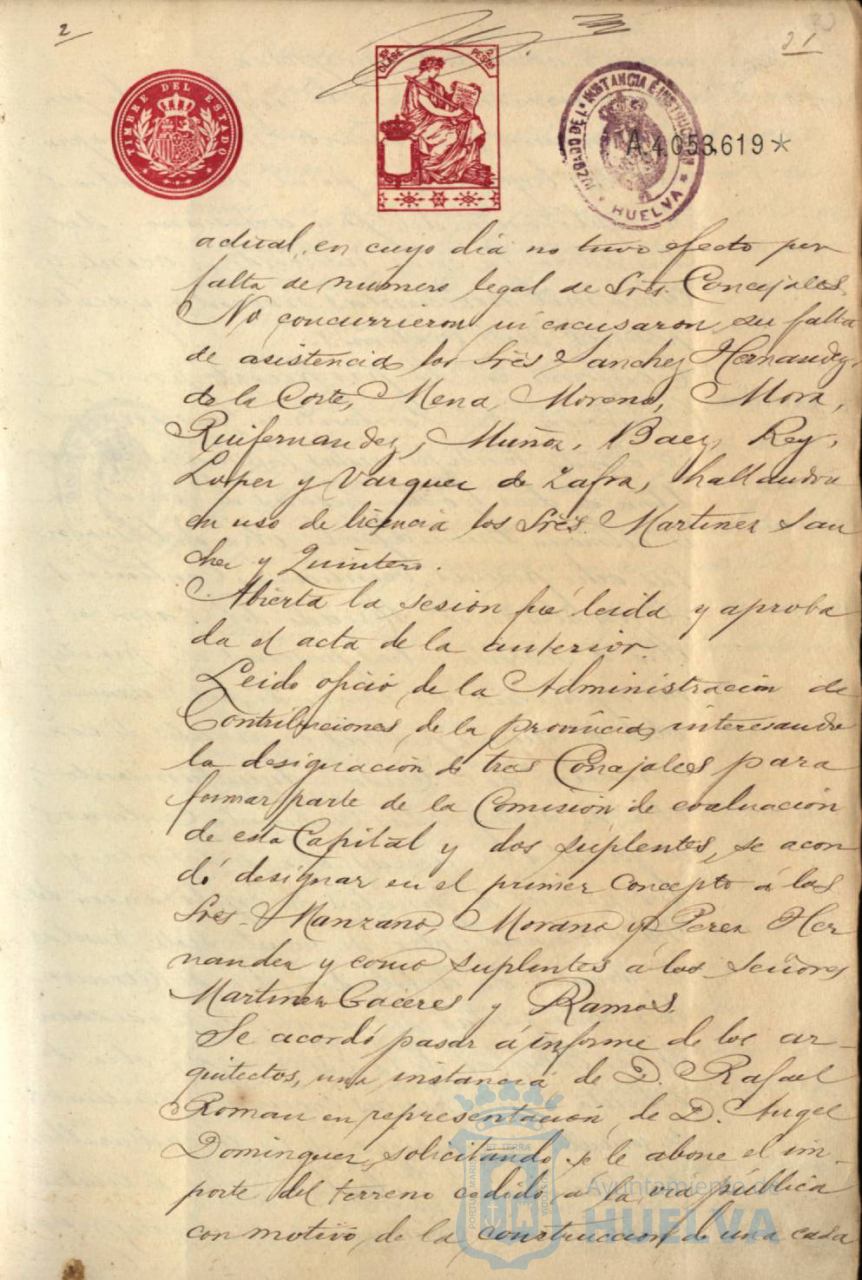 2
21
TIMBRE DEL ESTADO
CLASE 2 PESETAS
JUZGADO DE 1ª INSTANCIA E INSTRUCCION
HUELVA
A.4.053,619*
actual, en cuyo dia no tuvo efecto por
falta de número legal de Srés. Concejales.
No concurrieron ni escusaron su falta
de asistencia los Srés Sanchez Hernandez,
de la Corte, Mena, Moreno, Mora,
Ruifernandez, Muñoz, Baez, Rey,
Lopez y Vazquez de Zafra, hallandose
en uso de licencia los Srés. Martinez San
chez y Quintero.
Abierta la sesion fué leida y aproba
da el acta de la anterior.
Leido oficio de la Administración de
Contribuciones de la provincia, interesando
la designación de tres Concejales para
formar parte de la Comisión de evaluación
de esta Capital y dos suplentes, se acor
dó designar en el primer concepto á los
Srés. Manzano, Morano y Perez Her
nandez y como suplentes á los señores
Martinez Caceres y Ramos.
Se acordó pasar á informe de los ar-
quitectos, una instancia de D. Rafael
Roman en representación de D. Angel
Dominguez, solicitando se le abone el im-
porte del terreno cedido a la via pública
con motivo de la construccion de una casa
Ayuntamiento de
HUELVA